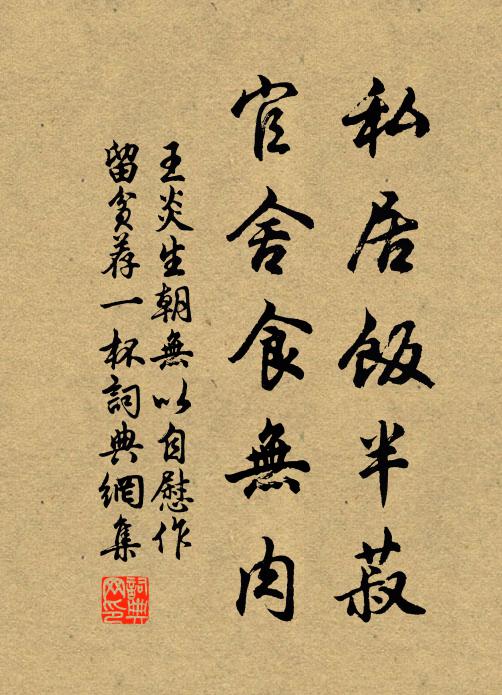 私居飯半菽
官舍食無肉
王炎生朝無以自慰作
留貧荐一杯詞典網集
詞典
网印